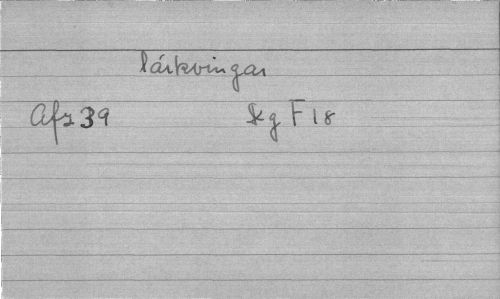 lärkvingar
Afz 39 Skg F 18